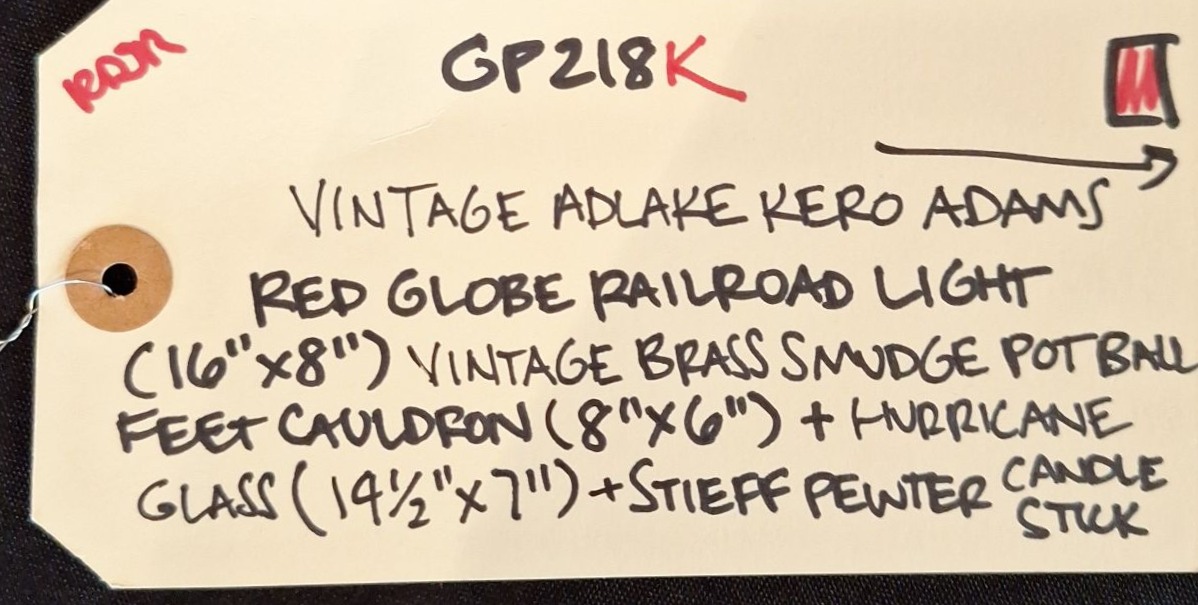 GP218K
VINTAGE ADLAKE KERO ADAMS
RED GLOBE RAILROAD LIGHT
(16"x8") VINTAGE BRASS SMUDGE POT BALL
FEET CAULDRON (8"x6") + HURRICANE
GLASS (14½"x7") + STIEFF PEWTER CANDLE
STICK